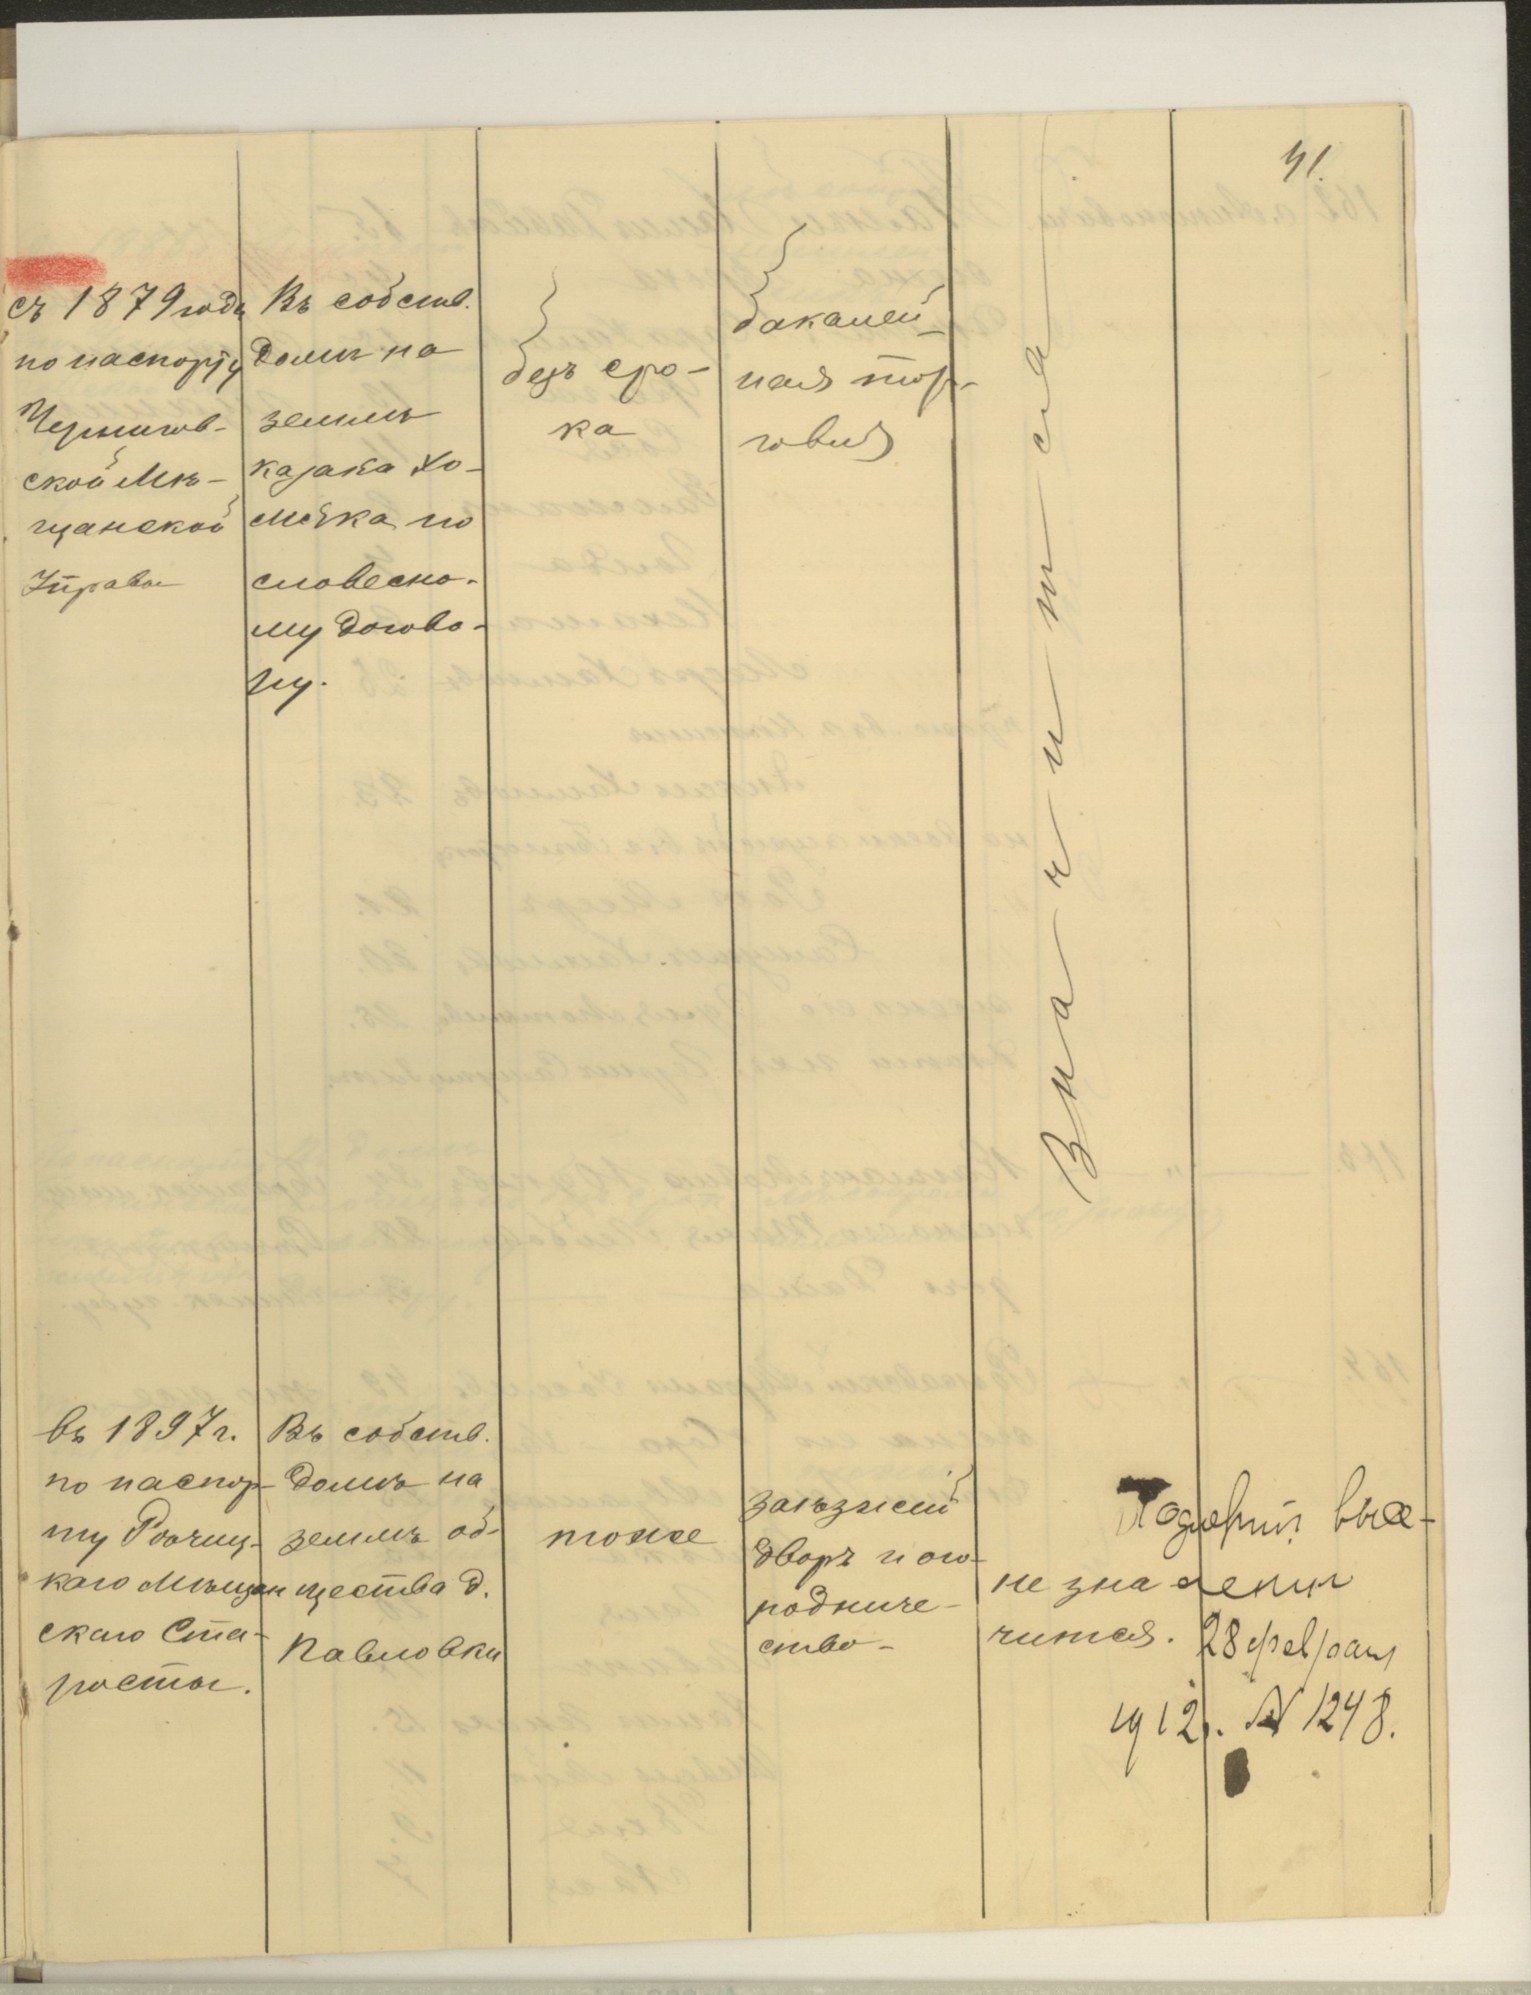 41.
съ 1879 года
по паспорту
Чернигов-
ской Мѣ-
щанской
Управы
Въ собств.
домѣ на
землѣ
казака Хо-
мяка по
словесно-
му догово-
ру.
безъ сро-
ка
бакалей-
ная тор-
говля
Значится
въ 1897 г.
по паспор-
ту Рѣчиц-
каго Мѣщан
скаго Ста-
росты.
Въ собств.
домѣ на
землѣ об-
щества д.
Павловки
тоже
заѣзжій
дворъ и ого-
родниче-
ство-
не зна
чится.
Подлежитъ высе-
ленію
28 февраля
1912г. № 1248.